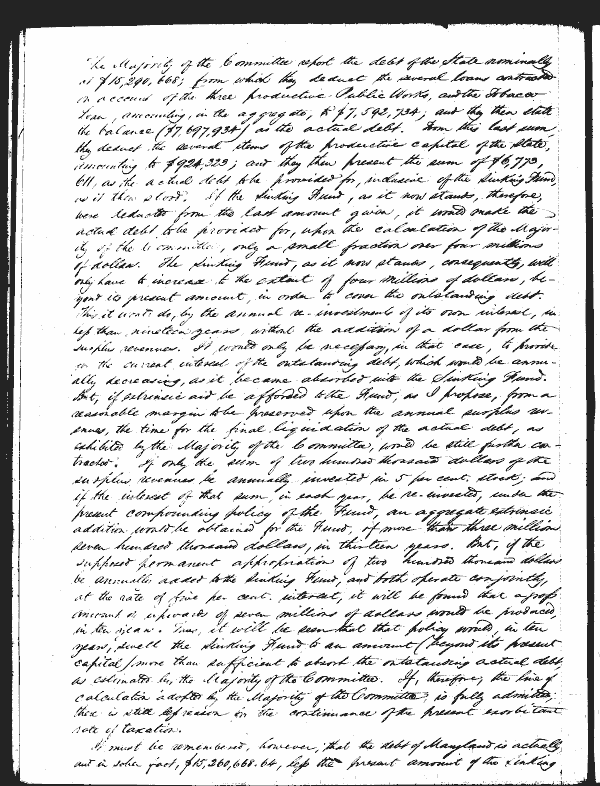 The Majority of the Committee report the debt of the State nominally
at $15,290,668; from which they deduct the several loans contracted
on account of the three productive Public Works, and the Tobacco
Loan, amounting, in the aggregate, to $7,592,734; and they then state
the balance ($7,697,934) as the actual debt. From this last sum,
they deduct the several items of the productive capital of the State,
amounting to $924,323; and they then present the sum of $6,773,
611, as the actual debt to be provided for, inclusive of the Sinking Fund,
as it then stood. If the Sinking Fund, as it now stands, therefore,
were deducted from the last amount given, it would make the
actual debt to be provided for, upon the calculation of the Major-
ity of the Committee, only a small fraction over four millions
of dollars. The Sinking Fund, as it now stands, consequently, will
only have to increase to the extent of four millions of dollars, be-
yond its present amount, in order to cover the outstanding debt.
This, it would do, by the annual re-investment of its own interest, in
less than nineteen years, without the addition of a dollar from the
surplus revenues. It would only be necessary, in that case, to provide
for the current interest of the outstanding debt, which would be annu-
ally decreasing, as it became absorbed into the Sinking Fund.
But, if extrinsic aid be afforded to the Fund, as I propose, from a
reasonable margin to be preserved upon the annual surplus rev-
enues, the time for the final liquidation of the actual debt, as
exhibited by the Majority of the Committee, would be still further con-
tracted. If only the sum of two hundred thousand dollars of the
surplus revenues be annually invested in 5 per cent. stock; and
if the interest of that sum, in each year, be re-invested, under the
present compounding policy of the Fund, an aggregate extrinsic
addition would be obtained for the Fund, of more than three millions
seven hundred thousand dollars, in thirteen years. But, if the
supposed permanent appropriation of two hundred thousand dollars
be annually added to the Sinking Fund, and both operate conjointly,
at the rate of five per cent. interest, it will be found that a gross
amount of upwards of seven millions of dollars would be produced,
in ten years. Thus, it will be seen that that policy would, in ten
years, swell the Sinking Fund to an amount (beyond its present
capital) more than sufficient to absorb the outstanding actual debt,
as estimated by the Majority of the Committee. If, therefore, the line of
calculation adopted by the Majority of the Committee is fully admitted,
there is still less reason for the continuance of the present exorbitant
rate of taxation.
It must be remembered, however, that the debt of Maryland is actually
and in sober fact, $15,260,668.64, less the present amount of the Sinking